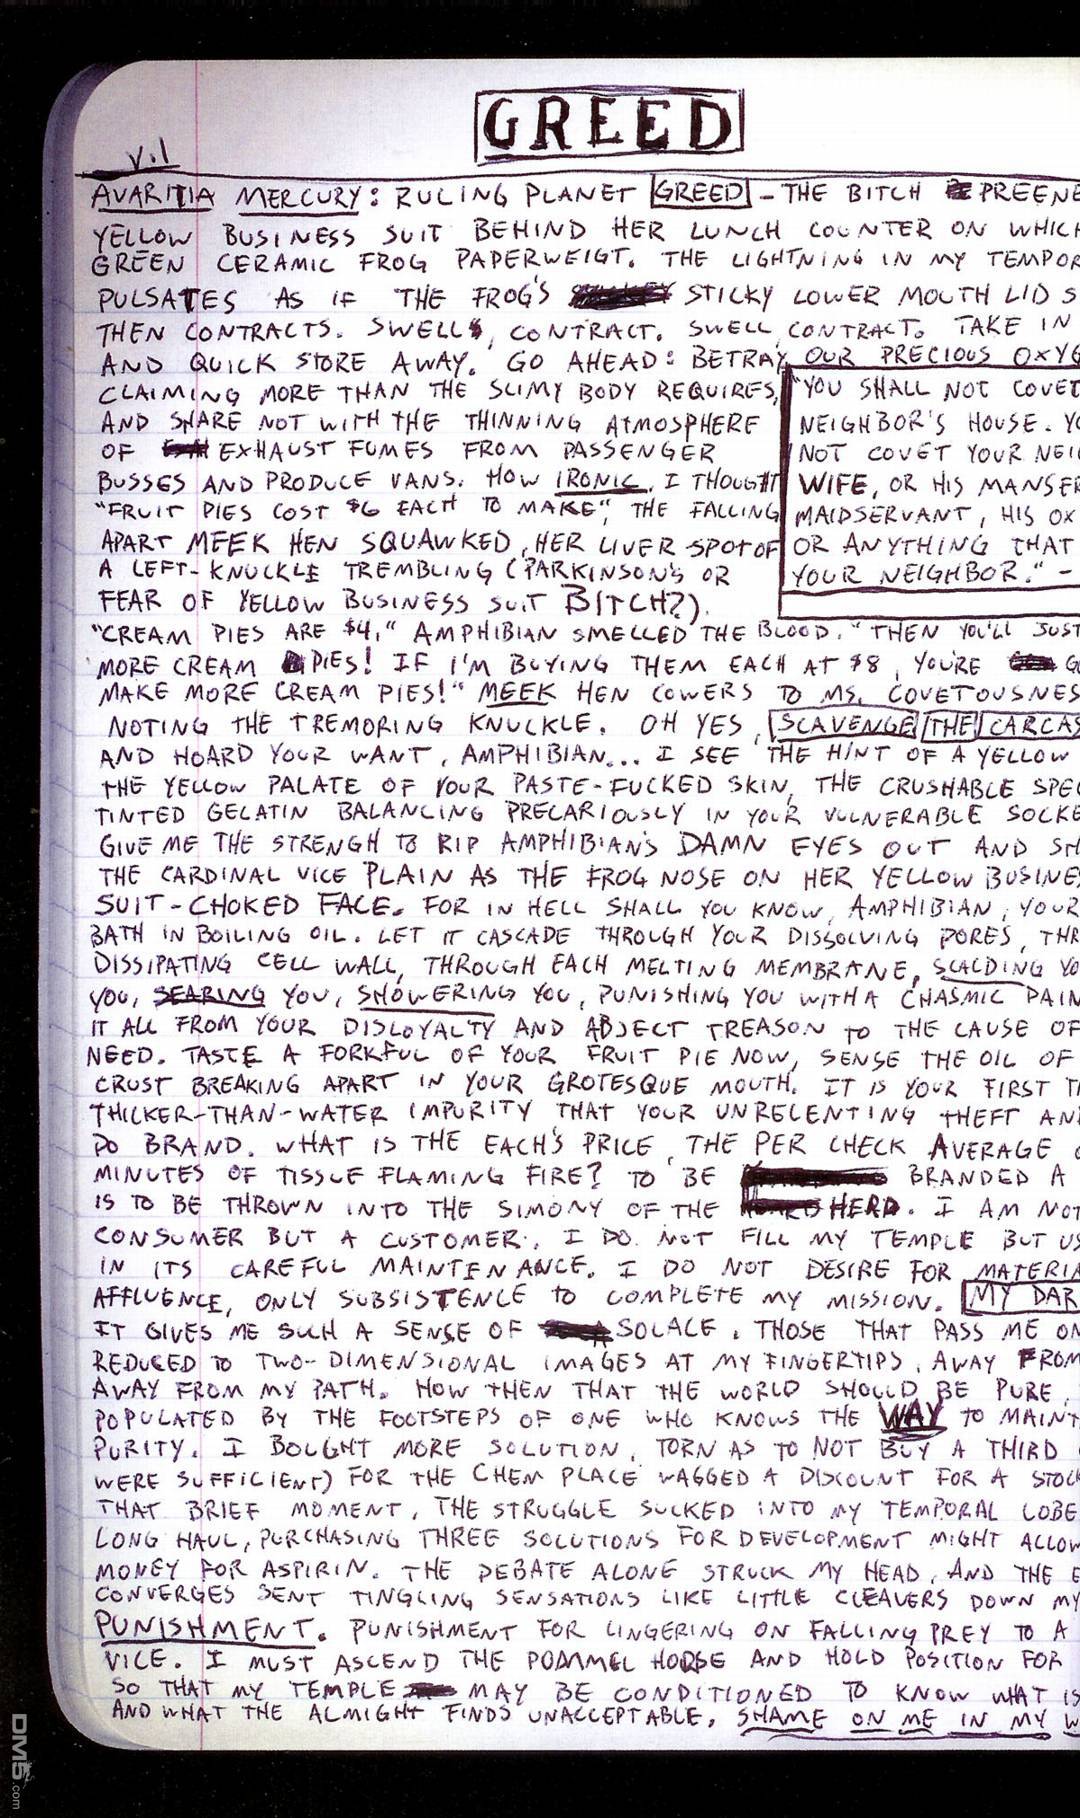 GREED
V.1
AVARITIA MERCURY: RULING PLANET GREED - THE BITCH PREENE
YELLOW BUSINESS SUIT BEHIND HER LUNCH COUNTER ON WHICH
GREEN CERAMIC FROG PAPERWEIGT. THE LIGHTNING IN MY TEMPOR
PULSATES AS IF THE FROG'S STICKY LOWER MOUTH LID S
THEN CONTRACTS. SWELLS, CONTRACT. SWELL, CONTRACT. TAKE IN
AND QUICK STORE AWAY. GO AHEAD: BETRAY OUR PRECIOUS OXYG
CLAIMING MORE THAN THE SLIMY BODY REQUIRES,
AND SHARE NOT WITH THE THINNING ATMOSPHERE
OF EXHAUST FUMES FROM PASSENGER
BUSSES AND PRODUCE VANS. HOW IRONIC. I THOUGHT
"FRUIT PIES COST $6 EACH TO MAKE", THE FALLING
APART MEEK HEN SQUAWKED, HER LIVER-SPOT OF
A LEFT-KNUCKLE TREMBLING (PARKINSON'S OR
FEAR OF YELLOW BUSINESS SUIT BITCH?).
"YOU SHALL NOT COVET
NEIGHBOR'S HOUSE. YO
NOT COVET YOUR NEIG
WIFE, OR HIS MANSER
MAIDSERVANT, HIS OX
OR ANYTHING THAT
YOUR NEIGHBOR." -
"CREAM PIES ARE $4," AMPHIBIAN SMELLED THE BLOOD. "THEN YOU'LL JUST
MORE CREAM PIES! IF I'M BUYING THEM EACH AT $8, YOU'RE G
MAKE MORE CREAM PIES!" MEEK HEN COWERS TO MS. COVETOUSNES
NOTING THE TREMORING KNUCKLE. OH YES, SCAVENGE THE CARCAS
AND HOARD YOUR WANT, AMPHIBIAN... I SEE THE HINT OF A YELLOW
THE YELLOW PALATE OF YOUR PASTE-FUCKED SKIN, THE CRUSHABLE SPEC
TINTED GELATIN BALANCING PRECARIOUSLY IN YOUR VULNERABLE SOCKE
GIVE ME THE STRENGH TO RIP AMPHIBIAN'S DAMN EYES OUT AND SH
THE CARDINAL VICE PLAIN AS THE FROG NOSE ON HER YELLOW BUSINE
SUIT-CHOKED FACE. FOR IN HELL SHALL YOU KNOW, AMPHIBIAN, YOUR
BATH IN BOILING OIL. LET IT CASCADE THROUGH YOUR DISSOLVING PORES, THR
DISSIPATING CELL WALL, THROUGH EACH MELTING MEMBRANE, SCALDING YO
YOU, SEARING YOU, SHOWERING YOU, PUNISHING YOU WITH A CHASMIC PAIN
IT ALL FROM YOUR DISLOYALTY AND ABJECT TREASON TO THE CAUSE OF
NEED. TASTE A FORKFUL OF YOUR FRUIT PIE NOW, SENSE THE OIL OF
CRUST BREAKING APART IN YOUR GROTESQUE MOUTH. IT IS YOUR FIRST T
THICKER-THAN-WATER IMPURITY THAT YOUR UNRELENTING THEFT AND
DO BRAND. WHAT IS THE EACH'S PRICE, THE PER CHECK AVERAGE
MINUTES OF TISSUE FLAMING FIRE? TO BE BRANDED A
IS TO BE THROWN INTO THE SIMONY OF THE HERD. I AM NOT
CONSUMER BUT A CUSTOMER. I DO NOT FILL MY TEMPLE BUT US
IN ITS CAREFUL MAINTENANCE. I DO NOT DESIRE FOR MATERIA
AFFLUENCE, ONLY SUBSISTENCE TO COMPLETE MY MISSION. MY DAR
IT GIVES ME SUCH A SENSE OF SOLACE. THOSE THAT PASS ME ON
REDUCED TO TWO-DIMENSIONAL IMAGES AT MY FINGERTIPS, AWAY FROM
AWAY FROM MY PATH. HOW THEN THAT THE WORLD SHOULD BE PURE,
POPULATED BY THE FOOTSTEPS OF ONE WHO KNOWS THE WAY TO MAINT
PURITY. I BOUGHT MORE SOLUTION, TORN AS TO NOT BUY A THIRD
WERE SUFFICIENT) FOR THE CHEM PLACE WAGGED A DISCOUNT FOR A STOCK
THAT BRIEF MOMENT, THE STRUGGLE SUCKED INTO MY TEMPORAL LOBE
LONG HAUL, PURCHASING THREE SOLUTIONS FOR DEVELOPMENT MIGHT ALLOW
MONEY FOR ASPIRIN. THE DEBATE ALONE STRUCK MY HEAD, AND THE E
CONVERGES SENT TINGLING SENSATIONS LIKE LITTLE CLEAVERS DOWN MY
PUNISHMENT. PUNISHMENT FOR LINGERING ON FALLING PREY TO A
VICE. I MUST ASCEND THE POMMEL HORSE AND HOLD POSITION FOR
SO THAT MY TEMPLE MAY BE CONDITIONED TO KNOW WHAT IS
AND WHAT THE ALMIGHT FINDS UNACCEPTABLE. SHAME ON ME IN MY W
DM5.com